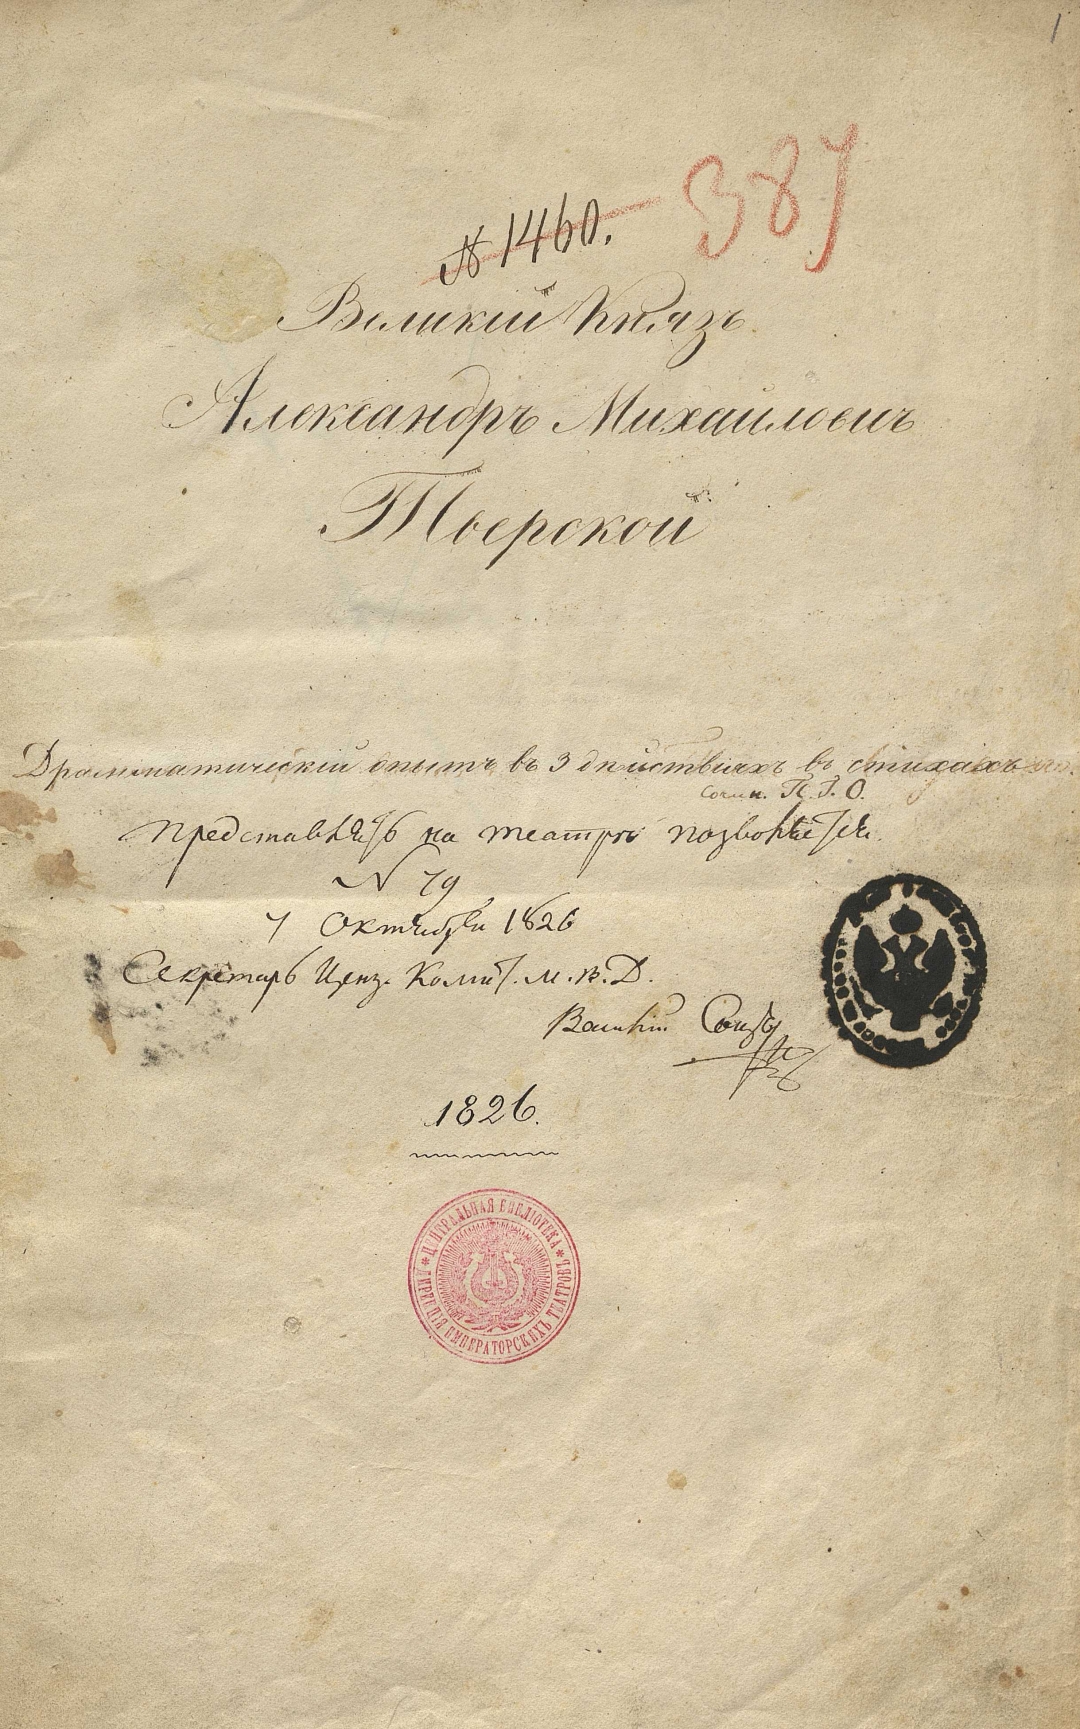 1
387
№ 1460.
Великій Князь
Александръ Михайловичь
Тверской
Драмматическій опытъ въ 3 дѣйствіяхъ въ стихахъ
Сочин. П. Г. О.
Представлять на театрѣ позволяется.
N 79
7 Октября 1826
Секретарь Ценз. Комит. М. В. Д.
1826.
ЦЕНТРАЛЬНАЯ БИБЛІОТЕКА * ДИРЕКЦІЯ ИМПЕРАТОРСКИХЪ ТЕАТРОВЪ *